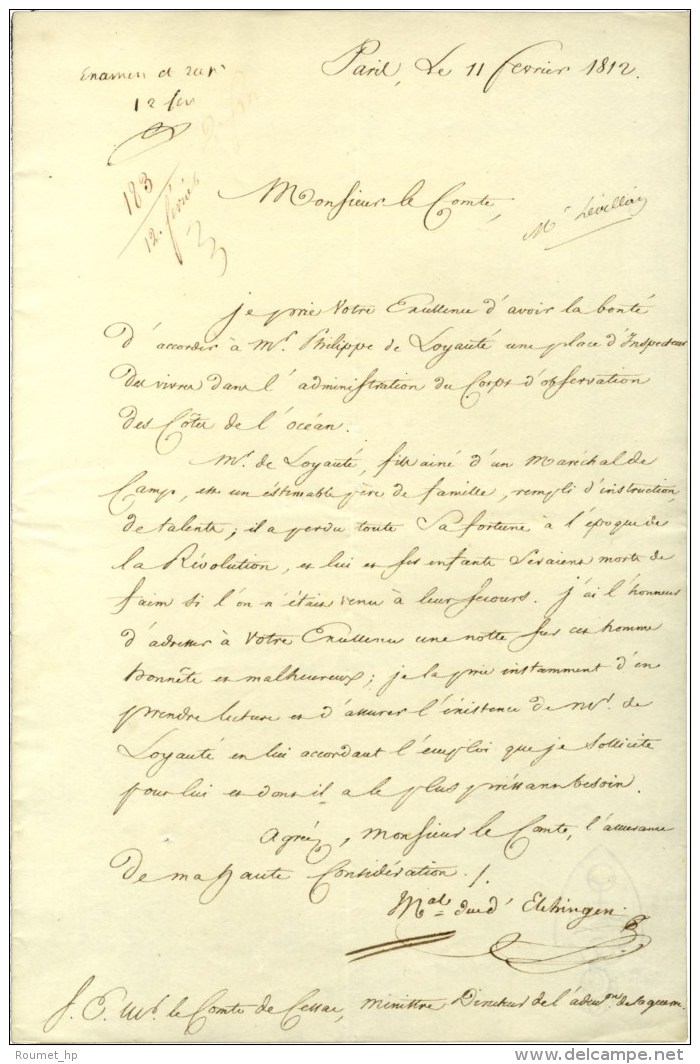 Paris, Le 11 février 1812.
Examen et rapt
12 fev
183
12. février
Monsieur le Comte,
Mr Levillain
je prie Votre Excellence d'avoir la bonté
d'accorder à Mr. Philippe de Loyauté une place d'Inspecteur
des vivres dans l'administration du Corps d'observation
des Côtes de l'océan.
Mr. de Loyauté, fils ainé d'un Maréchal de
Camp, est un éstimable père de famille, rempli d'instruction,
de talents; il a perdu toute sa fortune à l'époque de
la Révolution, et lui et ses enfants seraient morts de
faim si l'on n'était venu à leur secours. j'ai l'honneur
d'adresser à Votre Excellence une notte sur cet homme
honnête et malheureux; je la prie instamment d'en
prendre lecture et d'assurer l'éxistence de Mr. de
Loyauté en lui accordant l'emploi que je sollicite
pour lui et dont il a le plus préssant besoin.
Agréez, Monsieur le Comte, l'assurance
de ma haute Considération ./.
Mal duc d'Elchingen
S. E. Mr. le Comte de Cessac, Ministre Directeur de l'admon de la guerre.
Roumet_hp
www.delcampe.net